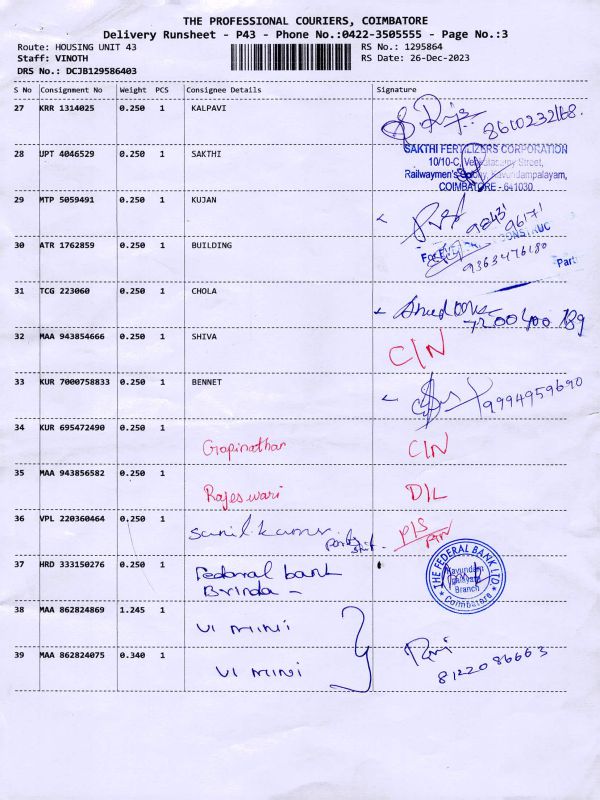 THE PROFESSIONAL COURIERS, COIMBATORE
Delivery Runsheet - P43 - Phone No.:0422-3505555 - Page No.:3
Route: HOUSING UNIT 43 RS No.: 1295864
Staff: VINOTH RS Date: 26-Dec-2023
DRS No.: DCJB129586403
S No Consignment No Weight PCS Consignee Details Signature
27 KRR 1314025 0.250 1 KALPAVI
8610232168.
28 UPT 4046529 0.250 1 SAKTHI SAKTHI FERTILIZERS CORPORATION
10/10-C, Street,
Railwaymen's Colony, Kavundampalayam,
COIMBATORE - 641030
29 MTP 5059491 0.250 1 KUJAN
98431 96171
30 ATR 1762859 0.250 1 BUILDING
9363476180
31 TCG 223060 0.250 1 CHOLA
7200400 189
32 MAA 943854666 0.250 1 SHIVA C/N
33 KUR 7000758833 0.250 1 BENNET 9994959690
34 KUR 695472490 0.250 1
Gopinathar C/N
35 MAA 943856582 0.250 1
Rajeswari D/L
36 VPL 220360464 0.250 1 Sunilkumar P/S
37 HRD 333150276 0.250 1 Fedaral bank
Brinda - THE FEDERAL BANK LTD.
Branch
Coimbatore
38 MAA 862824869 1.245 1
VI MINI
39 MAA 862824075 0.340 1 Ravi
VI MINI 8122086663